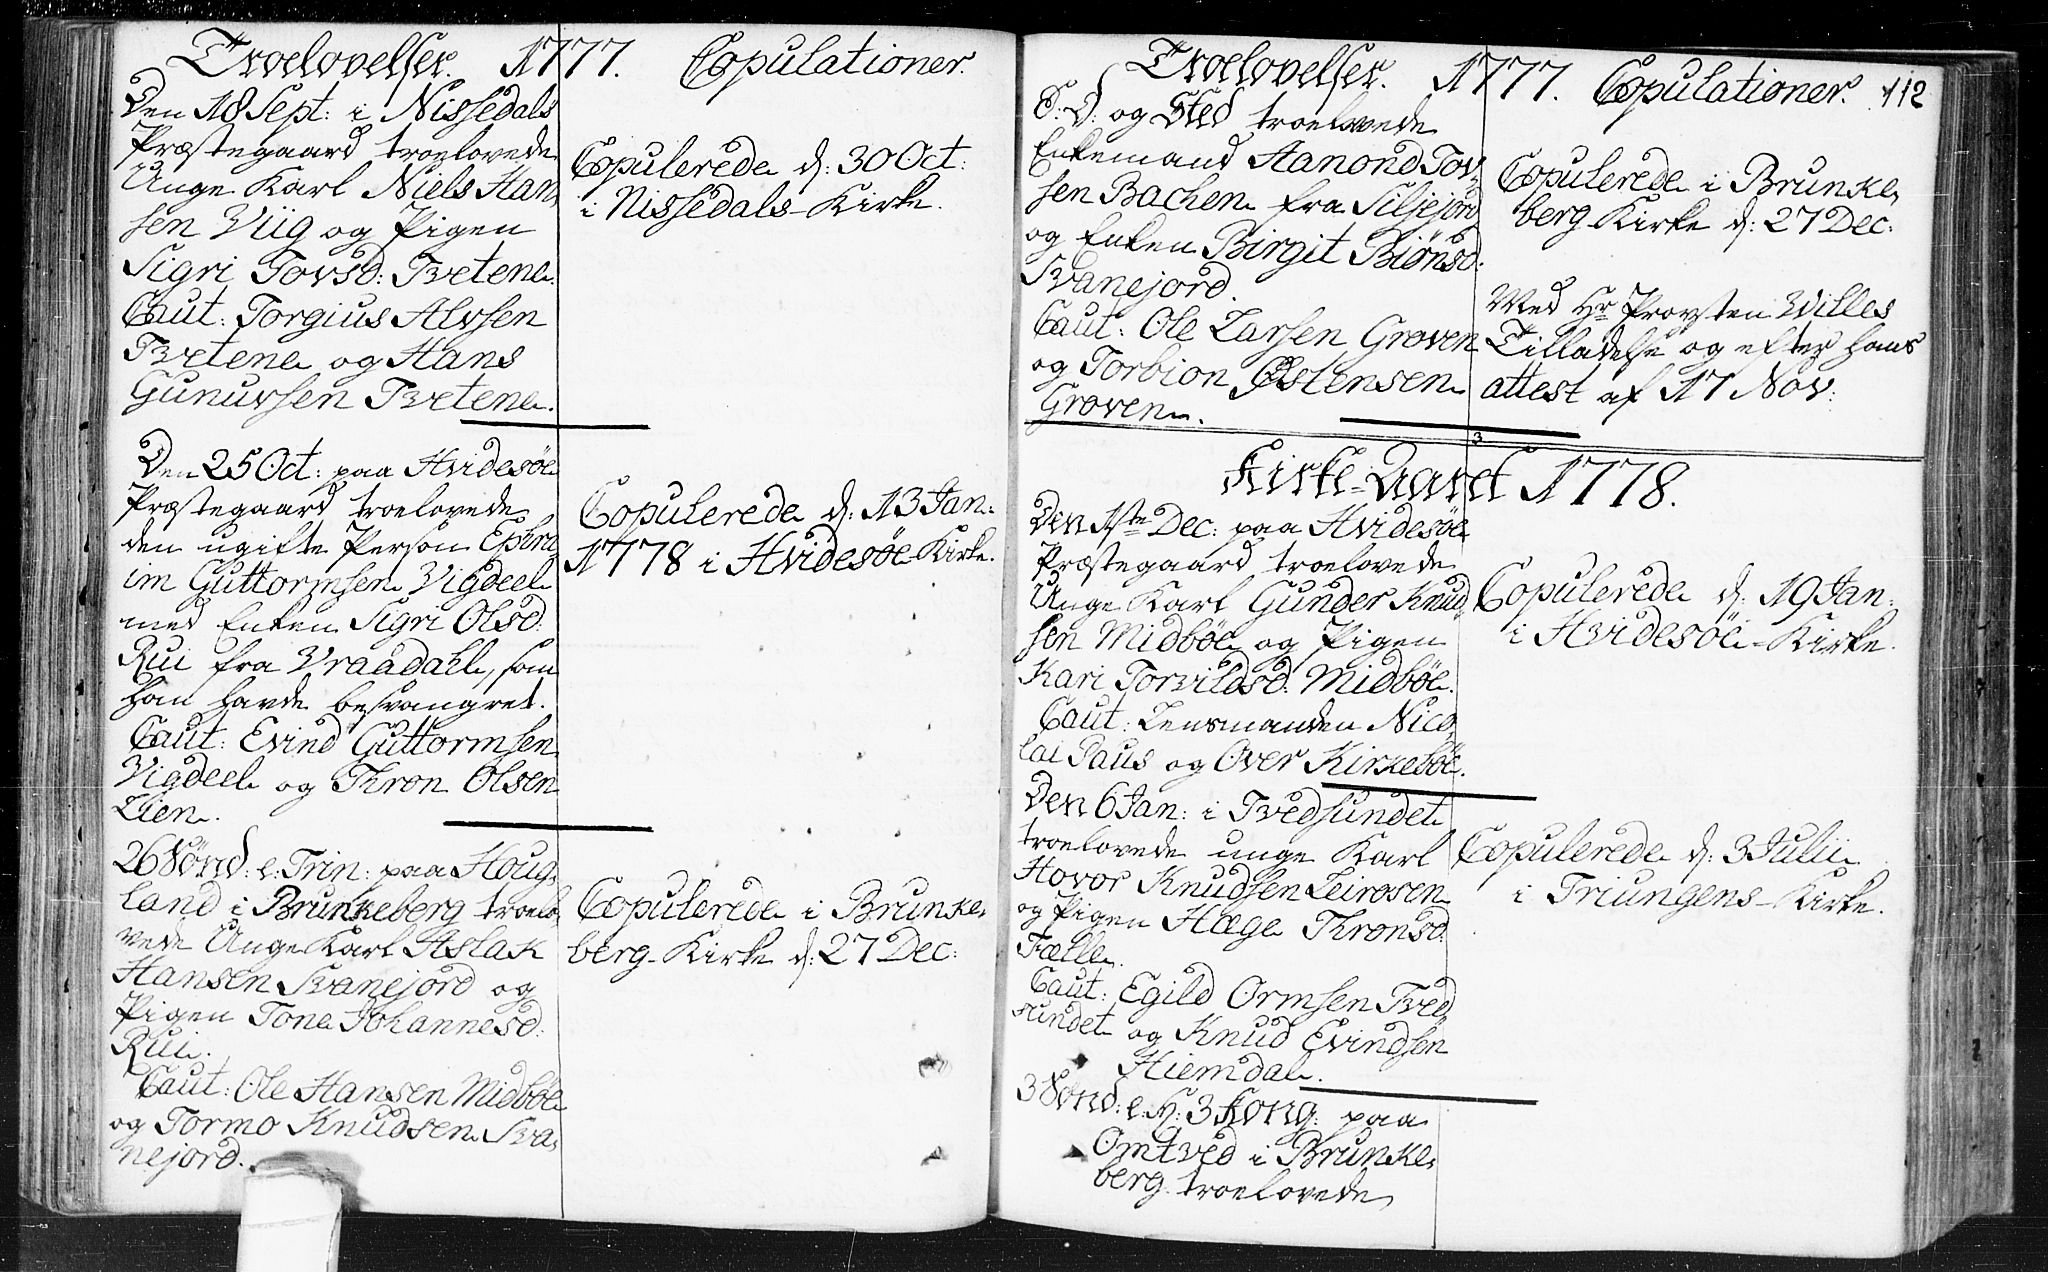 Troelovelser. 1777. Copulationer.
Den 18 Sept: i Nissedals
Præstegaard troelovede
Unge Karl Niels Han,
sen Viig og Pigen
Sigri Tovsd: Tvetene.
Caut: Torgius Alvsen
Tvetene og Hans
Gunuvsen Tvetene.
Copulerede d: 30 Oct:
i Nissedals-Kirke.
Den 25 Oct: paa Hvidesøe
Præstegaard troelovede
den ugifte Person Ephra
im Guttormsen Vigdeel
med Enken Sigri Olsd:
Rui fra Vraadahl, som
han havde besvangret.
Caut: Evind Guttormsen
Vigdeel og Thron Olsen
Lien.
Copulerede d: 13 Jan:
1778 i Hvidesøe-Kirke.
26 Sönd: e: Trin: paa Houg,
land i Brunkeberg troelo,
vede Unge Karl Aslak
Hansen Svanejord og
Pigen Tone Johannesd:
Rui.
Caut: Ole Hansen Midböe
og Tormo Knudsen Sva,
nejord.
Copulerede i Brunke,
berg-Kirke d: 27 Dec:
Troelovelser. 1777. Copulationer. 112
S: D: og Sted troelovede
Enkemand Aamond Tov,
sen Bachen fra Siljejord
og Enken Birgit Biönsd:
Svanejord.
Caut: Ole Larsen Groven
og Torbion Östensen
Groven.
Copulerede i Brunke,
berg-Kirke d: 27 Dec:
Med Hr Provsten Willes
Tilladelse og efter hans
attest af 17 Nov:
Kirke-Aaret 1778.
Den 1ste Dec: paa Hvidesøe
Præstegaard troelovede
Unge Karl Gunder Knud,
sen Midböe og Pigen
Kari Torvildsd: Midböe.
Caut: Lensmanden Nico,
lai Paus og Over Kirkeböe.
Copulerede d: 19 Jan:
i Hvidesøe-Kirke.
Den 6 Jan: i Tvedsundet
troelovede unge Karl
Hovor Knudsen Leirosen
og Pigen Hæge Thronsd:
Fælle.
Caut: Egild Ormsen Tved
sundet og Knud Evindsen
Hiemdal.
Copulerede d: 3 Julii
i Triungens-Kirke.
3 Sönd: e: H: 3 Kong: paa
Omtved i Brunke,
berg troelovede